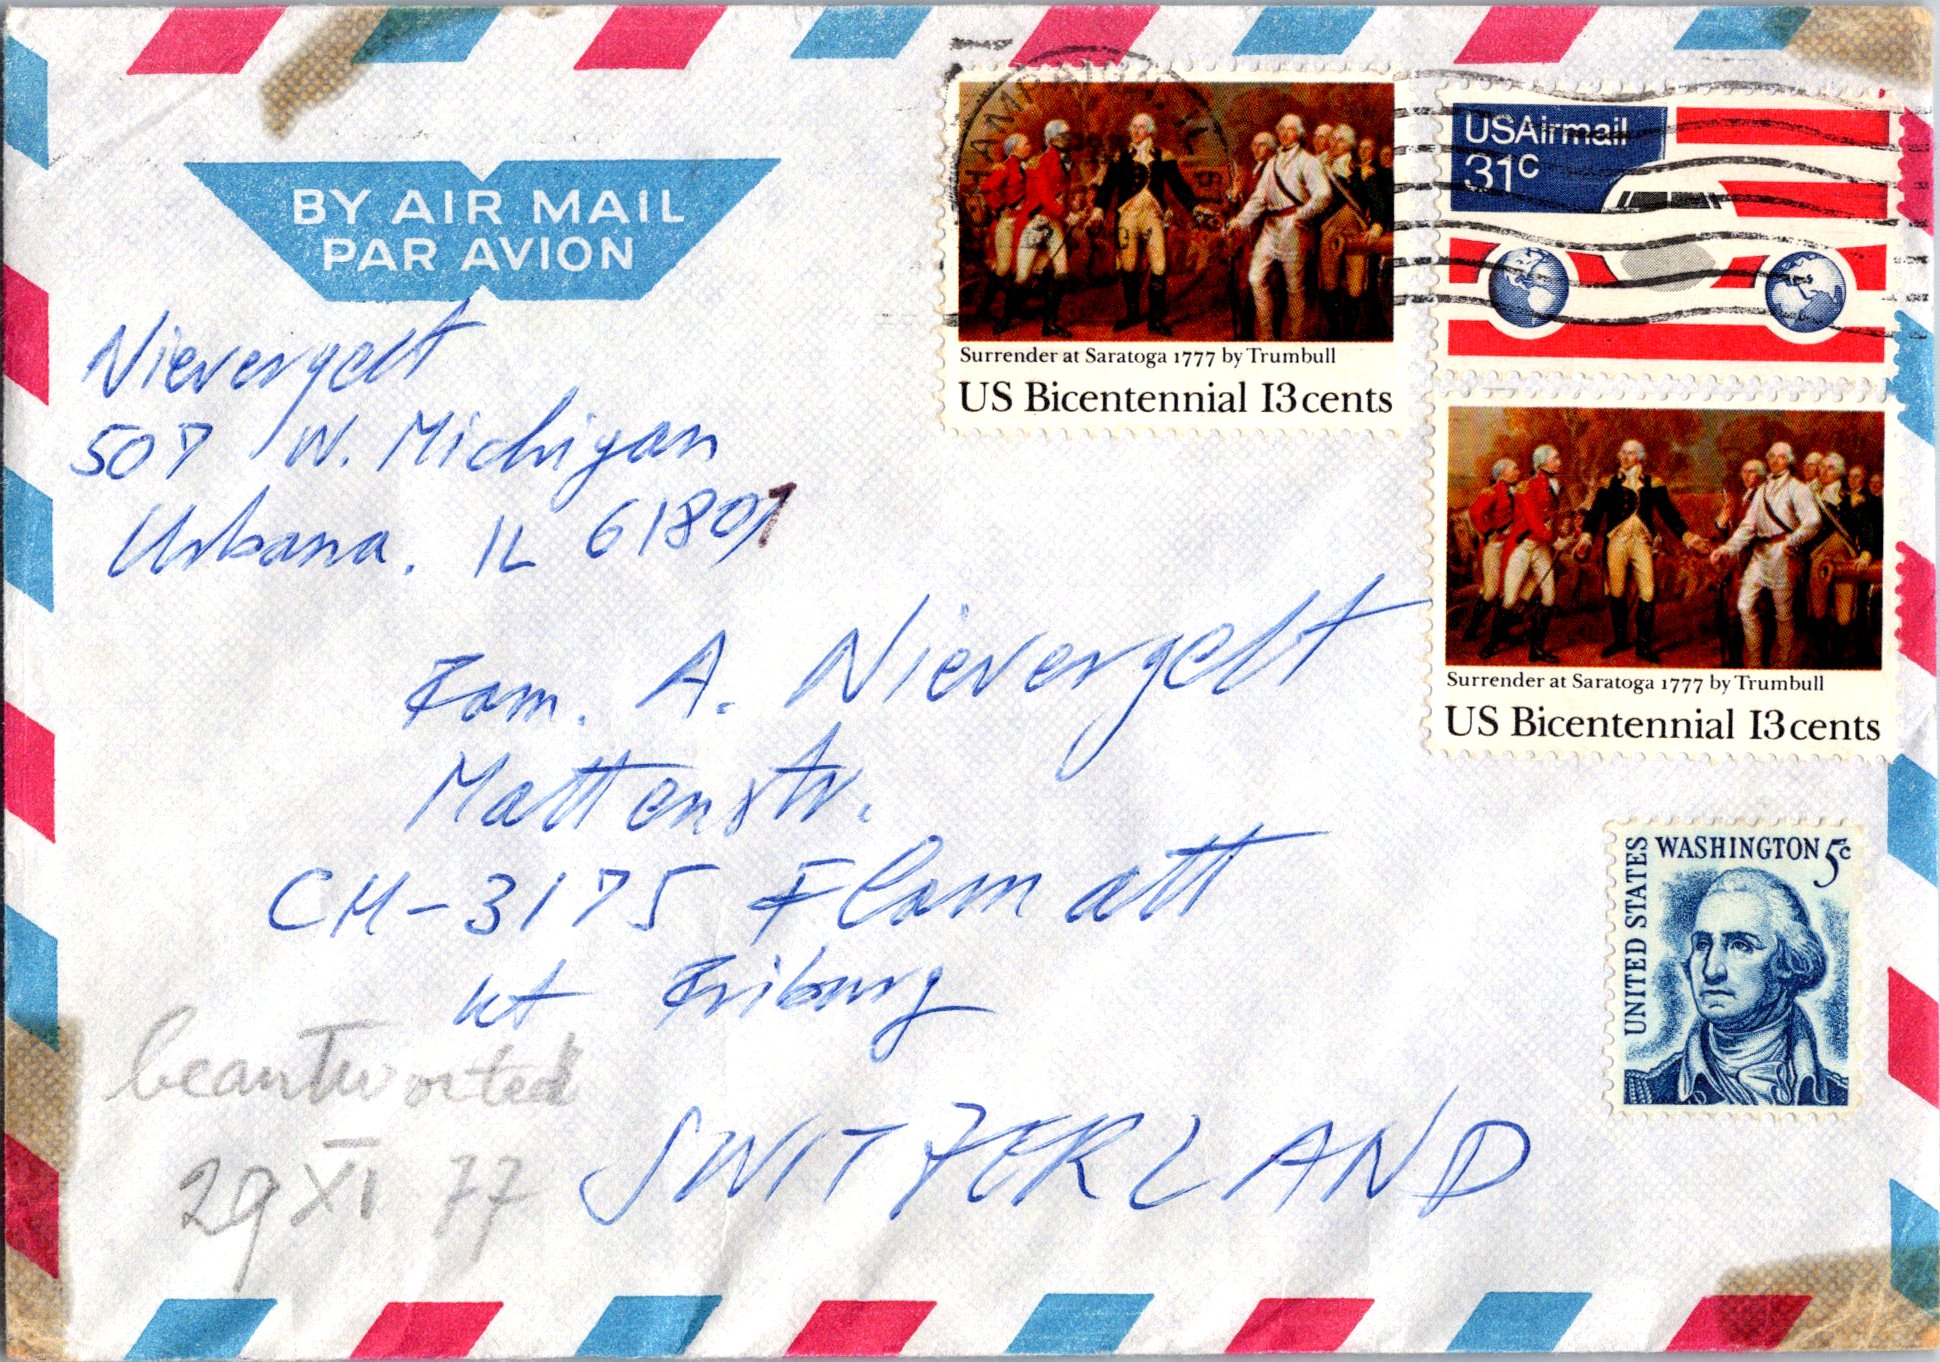 BY AIR MAIL
PAR AVION
CHAMPAIGN, IL
Surrender at Saratoga 1777 by Trumbull
US Bicentennial 13cents
USAirmail
31c
Surrender at Saratoga 1777 by Trumbull
US Bicentennial 13cents
UNITED STATES
WASHINGTON 5c
Nievergelt
507 W. Michigan
Urbana, IL 61801
Fam. A. Nievergelt
Mattenstr.
CH-3175 Flamatt
Kt Friburg
SWITZERLAND
beantwortet
29 XI 77